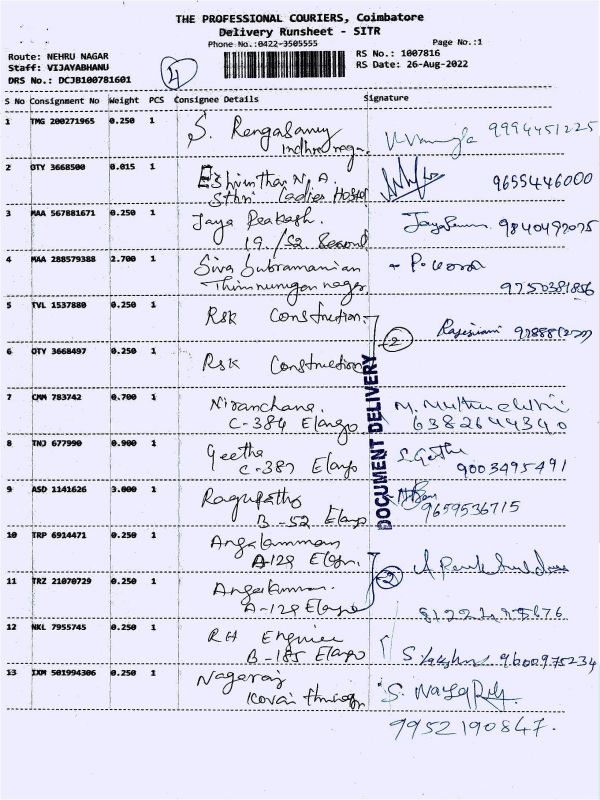 THE PROFESSIONAL COURIERS, Coimbatore
Delivery Runsheet - SITR
Phone No.:0422-3505555
Page No.:1
Route: NEHRU NAGAR
Staff: VIJAYABHANU
DRS No.: DCJB100781601
4
RS No.: 1007816
RS Date: 26-Aug-2022
S No Consignment No Weight PCS Consignee Details Signature
1 TMG 200271965 0.250 1 S. Rengasamy 9994451225
2 OTY 3668500 0.015 1 Eshvinthan N.A. 9655446000
Sthri Ladies Hostel
3 MAA 567881671 0.250 1 Jaya Peakash. 9840492025
19/52 Second
4 MAA 288579388 2.700 1 Siva Subramanian
9750381856
5 TVL 1537880 0.250 1 Rsk Construction
2
6 OTY 3668497 0.250 1 Rsk Construction
DOCUMENT DELIVERY
7 CMM 783742 0.700 1 Niranchana.
C-384 Elango 6382644340
8 TNJ 677990 0.900 1 Geetha S. Geetha
C-387 Elango 9003495491
9 ASD 1141626 3.000 1 Ragupathy
B-52 Elango 9659536715
10 TRP 6914471 0.250 1 Angalamman
A-129 Elgn.
2
11 TRZ 21070729 0.250 1
A-129 Elango
12 NKL 7955745 0.250 1 RH Enginee
B-185 Elango 9600975234
13 IXM 501994306 0.250 1 Nagaraj S. Nagaraj
9952190847.